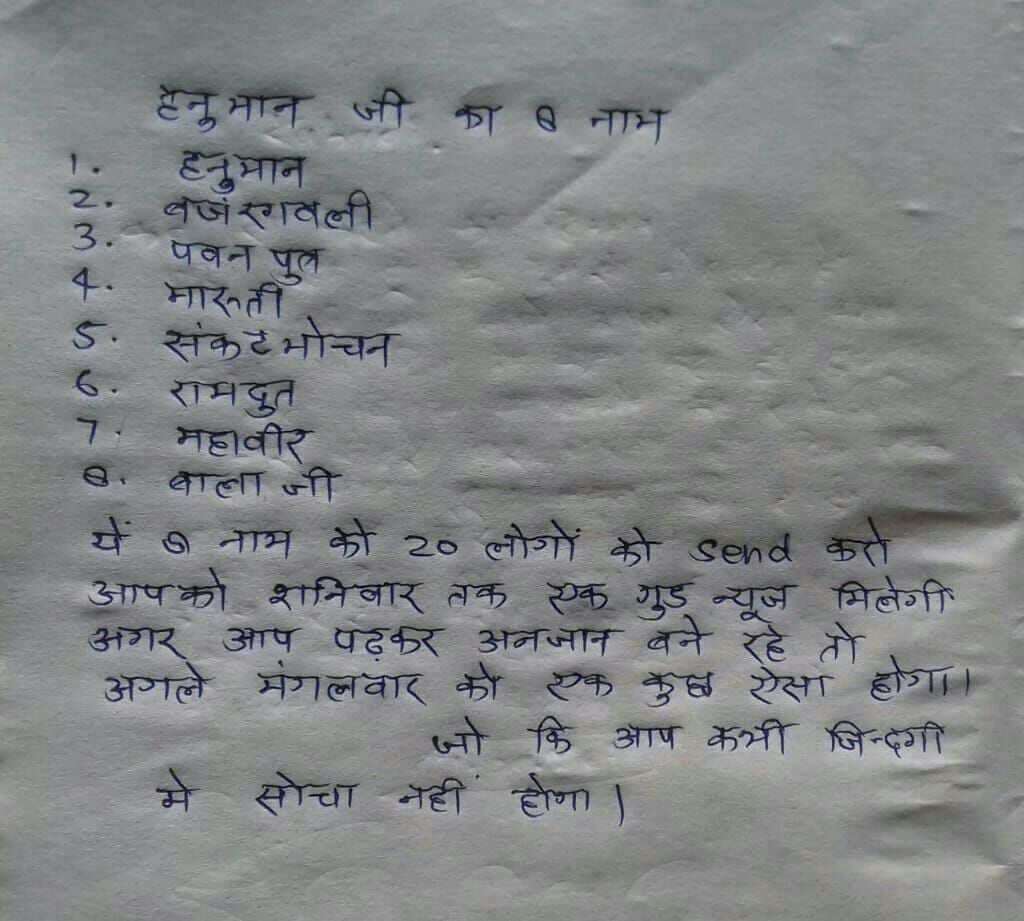 हनुमान जी का 8 नाम
1. हनुमान
2. बजंरगबली
3. पवन पुत्र
4. मारुती
5. संकटमोचन
6. रामदुत
7. महावीर
8. बाला जी
यें 8 नाम को 20 लोगों को send करो
आपको शनिवार तक एक गुड न्यूज मिलेगी
अगर आप पढ़कर अनजान बने रहे तो
अगले मंगलवार को एक कुछ ऐसा होगा।
जो कि आप कभी जिन्दगी
मे सोचा नहीं होगा।